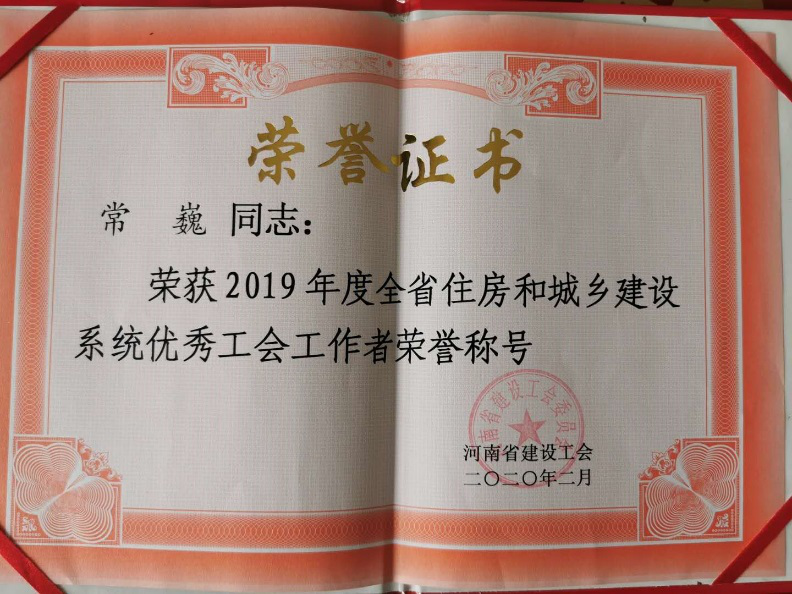 荣誉证书
常 巍 同志：
荣获2019年度全省住房和城乡建设
系统优秀工会工作者荣誉称号
河南省建设工会委员会
河南省建设工会
二〇二〇年二月